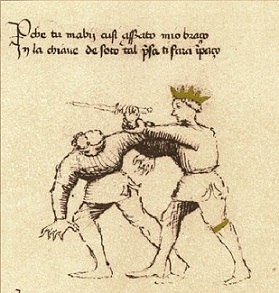 Pche tu mabij cusi affrato mio braço
In la chiaue de soto tal psa ti fara ipaço